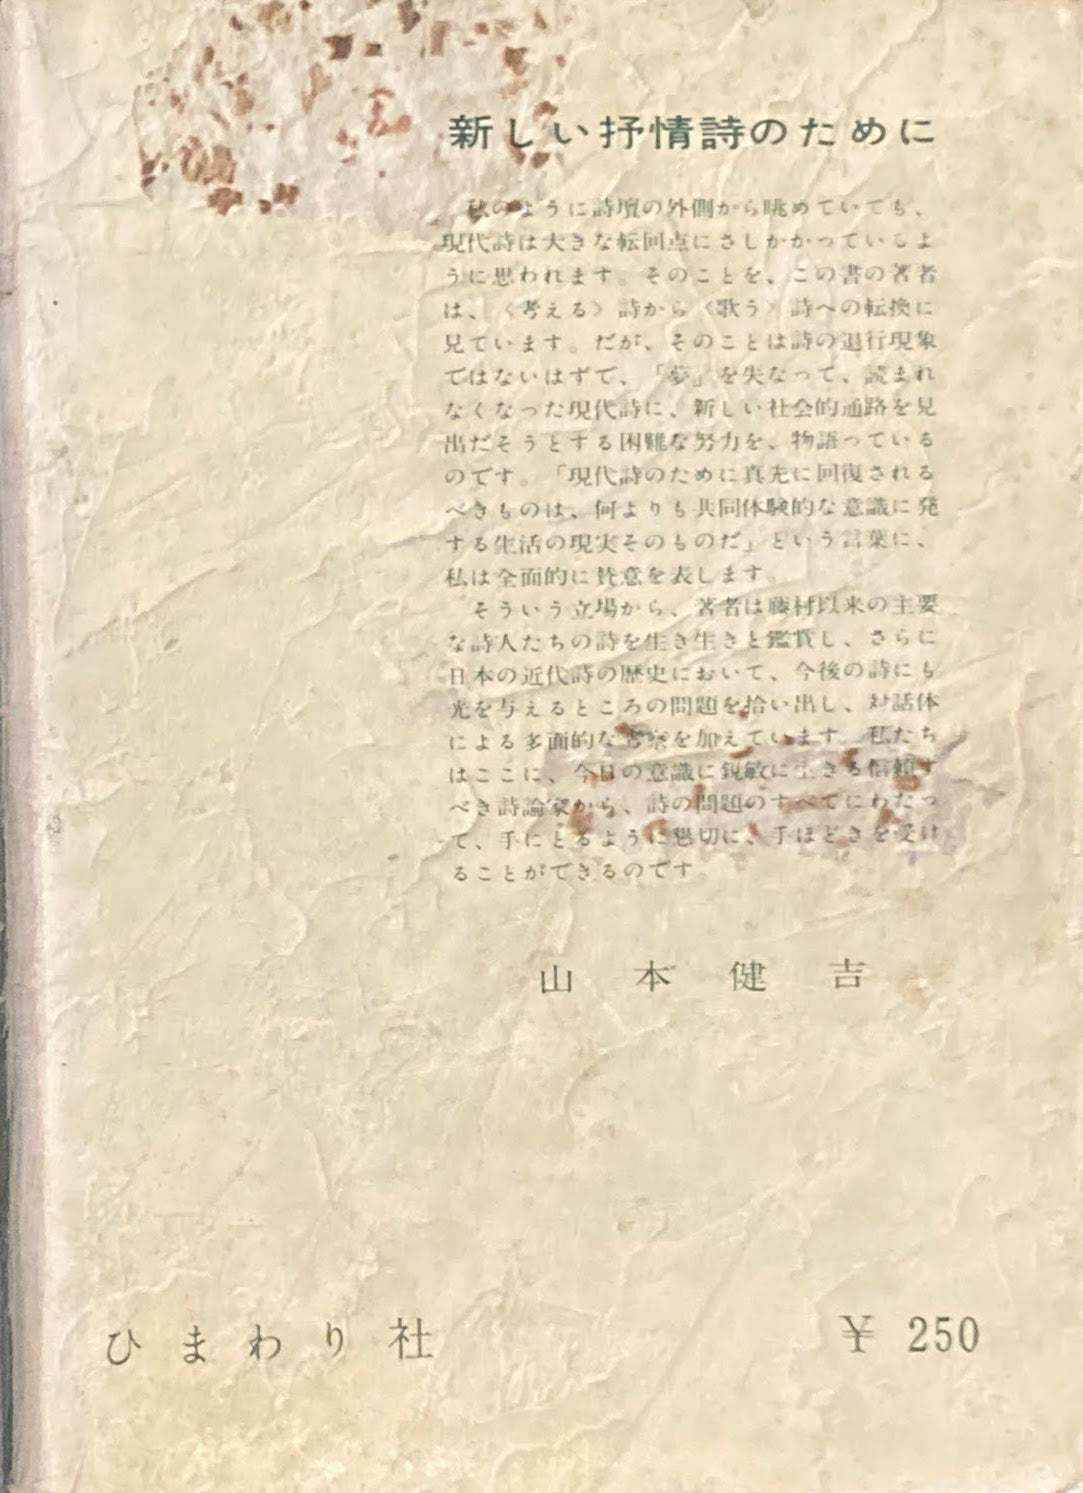 新しい抒情詩のために
私のように詩壇の外側から眺めていても、
現代詩は大きな転回点にさしかかっているよ
うに思われます。そのことを、この書の著者
は、〈考える〉詩から〈歌う〉詩への転換に
見ています。だが、そのことは詩の退行現象
ではないはずで、「夢」を失なって、読まれ
なくなった現代詩に、新しい社会的通路を見
出だそうとする困難な努力を、物語っている
のです。「現代詩のために真先に回復される
べきものは、何よりも共同体験的な意識に発
する生活の現実そのものだ」という言葉に、
私は全面的に賛意を表します。
そういう立場から、著者は藤村以来の主要
な詩人たちの詩を生き生きと鑑賞し、さらに
日本の近代詩の歴史において、今後の詩にも
光を与えるところの問題を拾い出し、対話体
による多面的な考察を加えています。私たち
はここに、今日の意識に鋭敏に生きる信頼す
べき詩論家から、詩の問題のすべてにわたっ
て、手にとるように懇切に、手ほどきを受け
ることができるのです。
山本健吉
ひまわり社
¥ 250